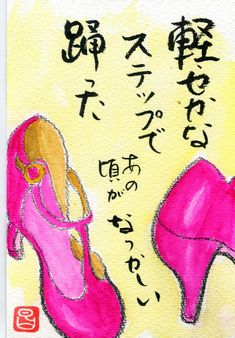 軽やかな
ステップで
踊った
あの
頃が
なつかしい